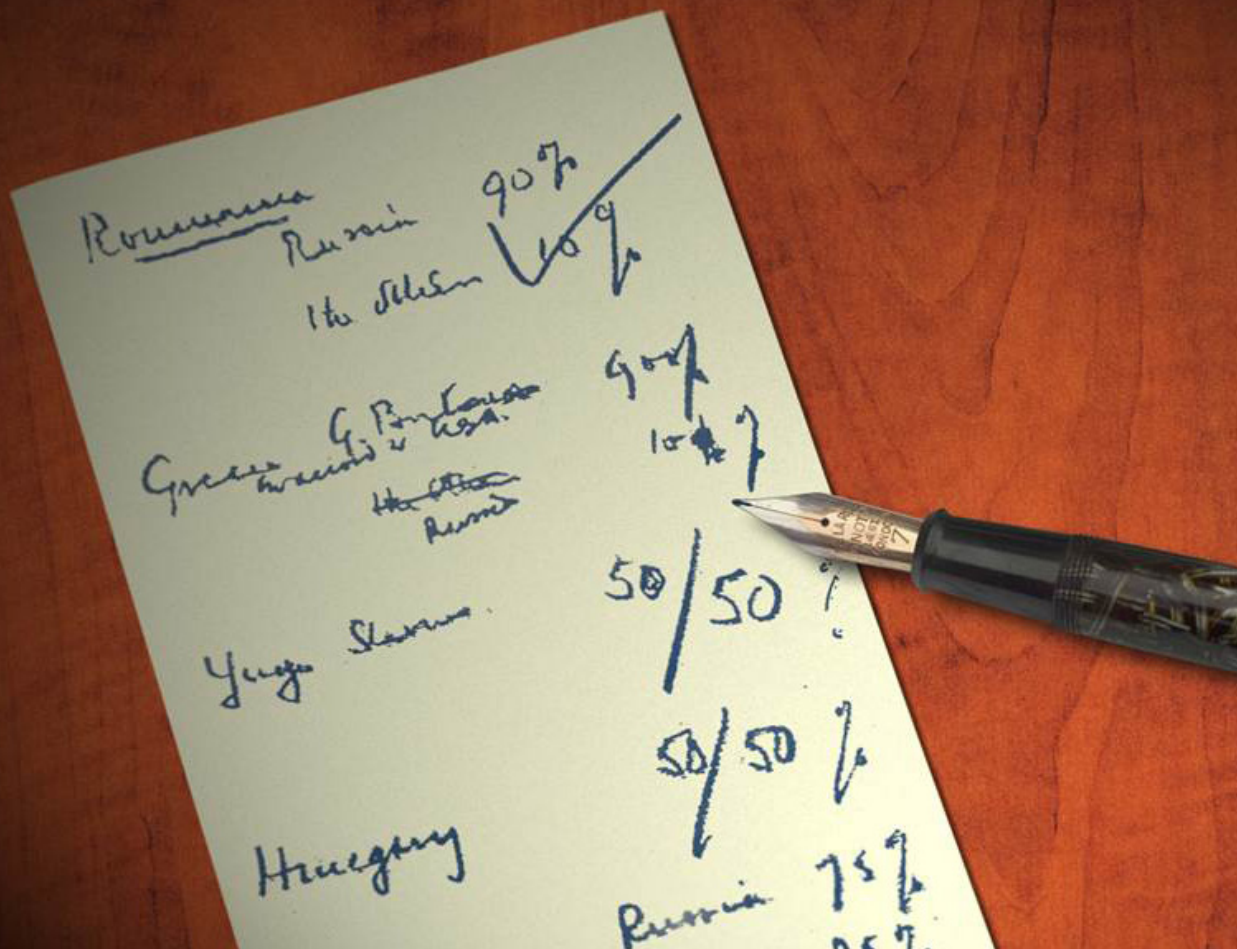 Roumania
Russia 90%
The others 10%
Greece G. Britain 90%
in accord w USA.
The others
Russia 10%
Yugo Slavia. 50/50 %
Hungary 50/50 %
Russia 75%
25%